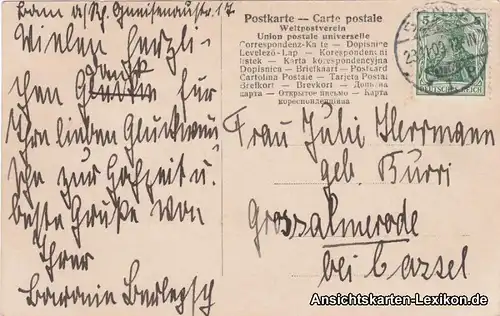 Bonn a/Rh. Gneisenaustr. 17
Vielen herzli-
chen Dank für
Ihre lieben Glückwün
sche zur Hochzeit u.
beste Grüße von
Ihrer
Baronin Berlepsch
Postkarte — Carte postale
Weltpostverein
Union postale universelle
Correspondenz-Karte — Dopisnice
Levelező-Lap — Korespondenční
lístek — Karta korespondencyjna
Dopisnica — Briefkaart — Postcard
Cartolina Postale — Tarjeta Postal
Brefkort — Brevkort — Допис на
карта — Открытое письмо — Карта
кореспонденційна
5
DEUTSCHES REICH
Frau Julie Herrmann
geb. Burri
Grossalmerode
bei Cassel
Ansichtskarten-Lexikon.de